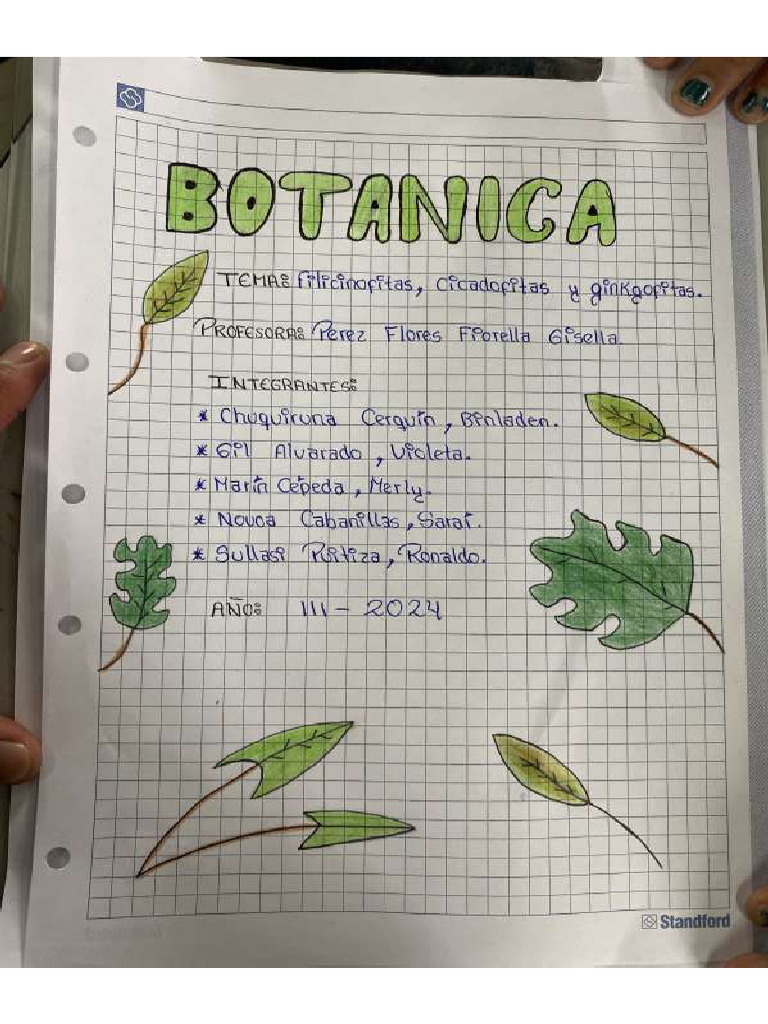 BOTANICA
TEMA: filicinofitas, cicadofitas y ginkgofitas.
PROFESORA: Perez Flores Fiorella Gisella.
INTEGRANTES:
* Chuquiruna Cerquín, Binladen.
* Gil Alvarado, Violeta.
* Marín Cepeda, Merly.
* Novoa Cabanillas, Sarai.
* Sullasi Ritiza, Ronaldo.
AÑO: III - 2024
Standford